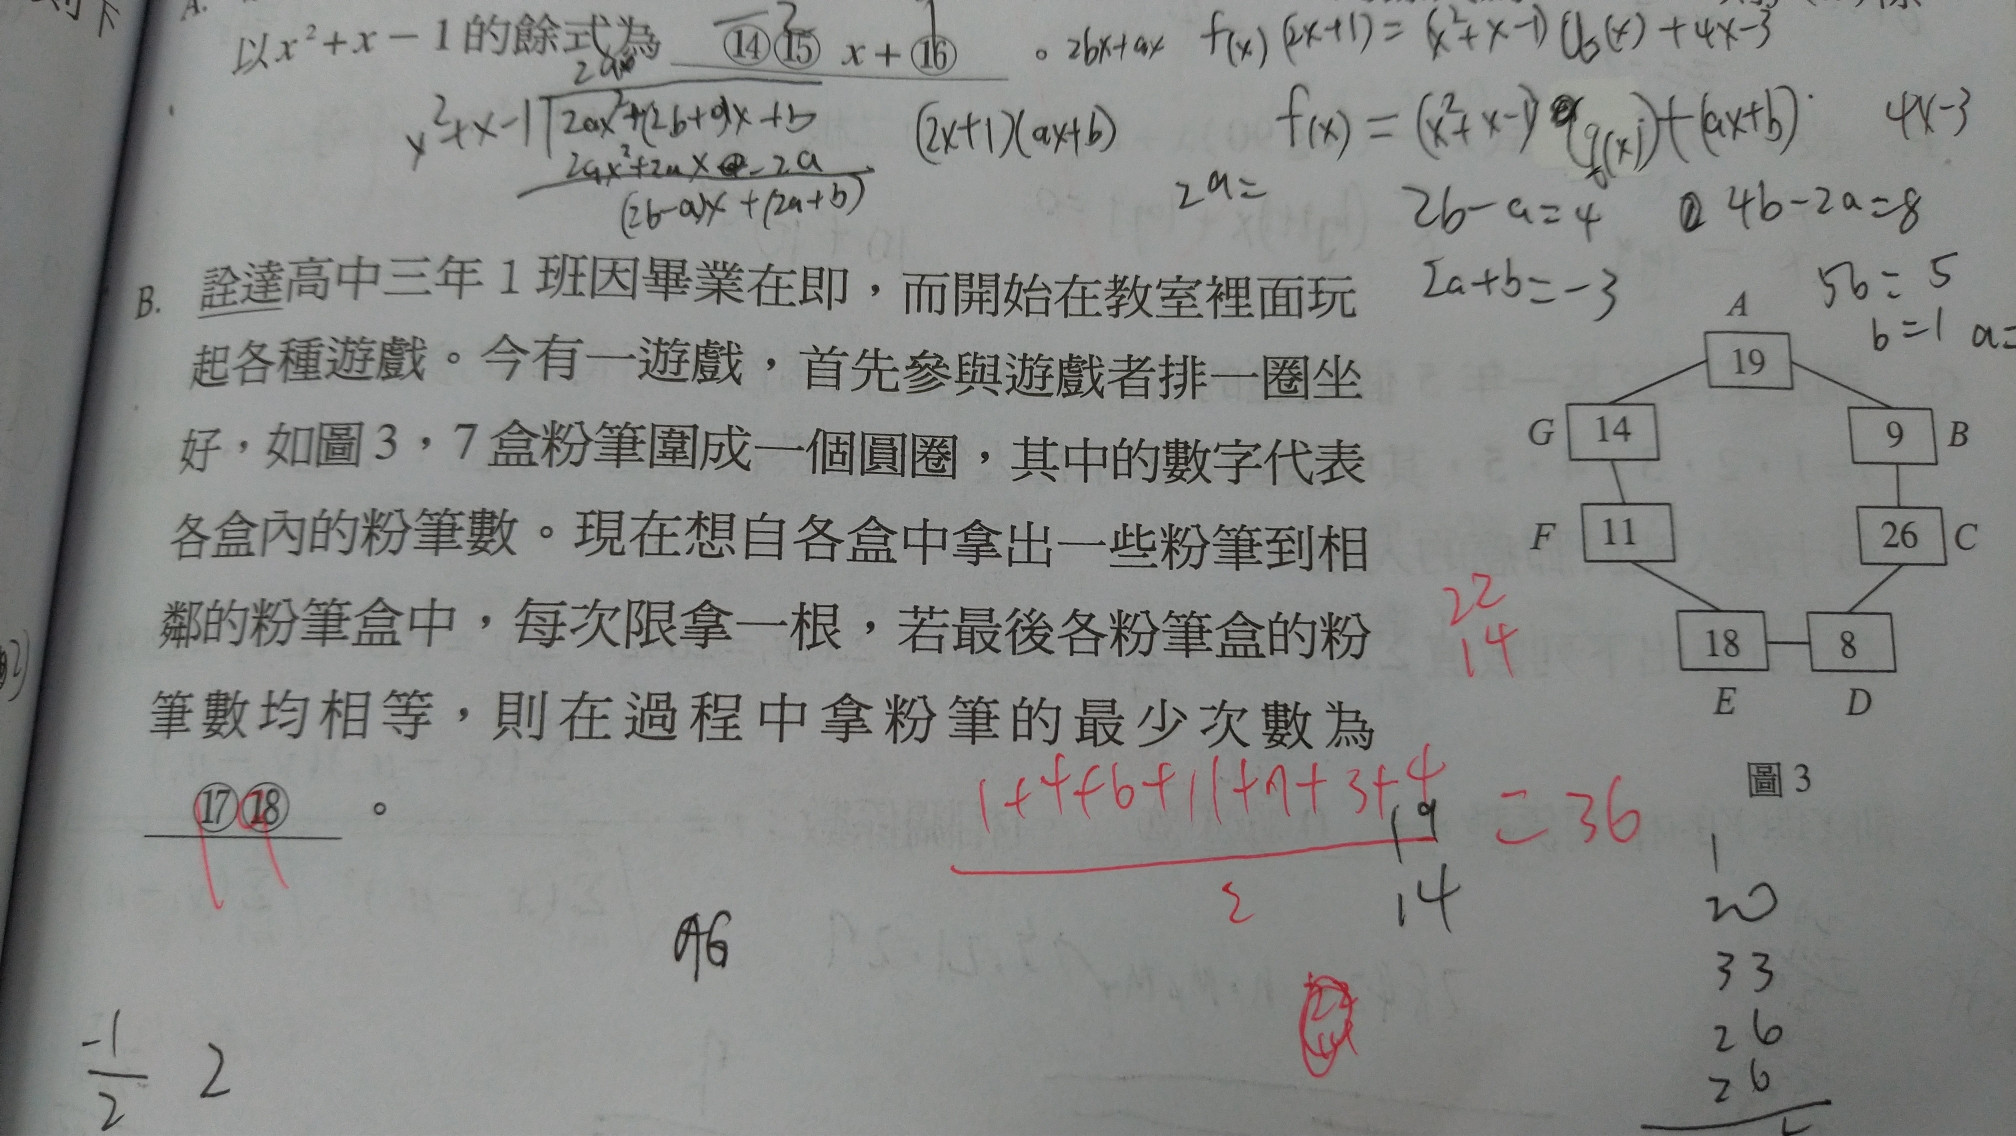 A.
以x²+x-1的餘式為 ⑭⑮ x+⑯ 。 2bx+ax f(x)(2x+1)=(x²+x-1) +4x-3
x²+x-1 2ax²+(2b+a)x+b (2x+1)(ax+b) f(x)=(x²+x-1) +(ax+b) 4x-3
2ax²+2ax -2a
(2b-a)x+(2a+b) 2a= 2b-a=4 4b-2a=8
2a+b=-3 5b=5
b=1 a=
B. 詮達高中三年1班因畢業在即，而開始在教室裡面玩
起各種遊戲。今有一遊戲，首先參與遊戲者排一圈坐
好，如圖3，7盒粉筆圍成一個圓圈，其中的數字代表
各盒內的粉筆數。現在想自各盒中拿出一些粉筆到相
鄰的粉筆盒中，每次限拿一根，若最後各粉筆盒的粉
筆數均相等，則在過程中拿粉筆的最少次數為
⑰⑱ 。
A
19
G 14
9 B
F 11
26 C
18 8
E D
圖3
22
14
1+4+6+11+7+3+4
2
=36
19
14
1
20
33
26
26
-1
2
2